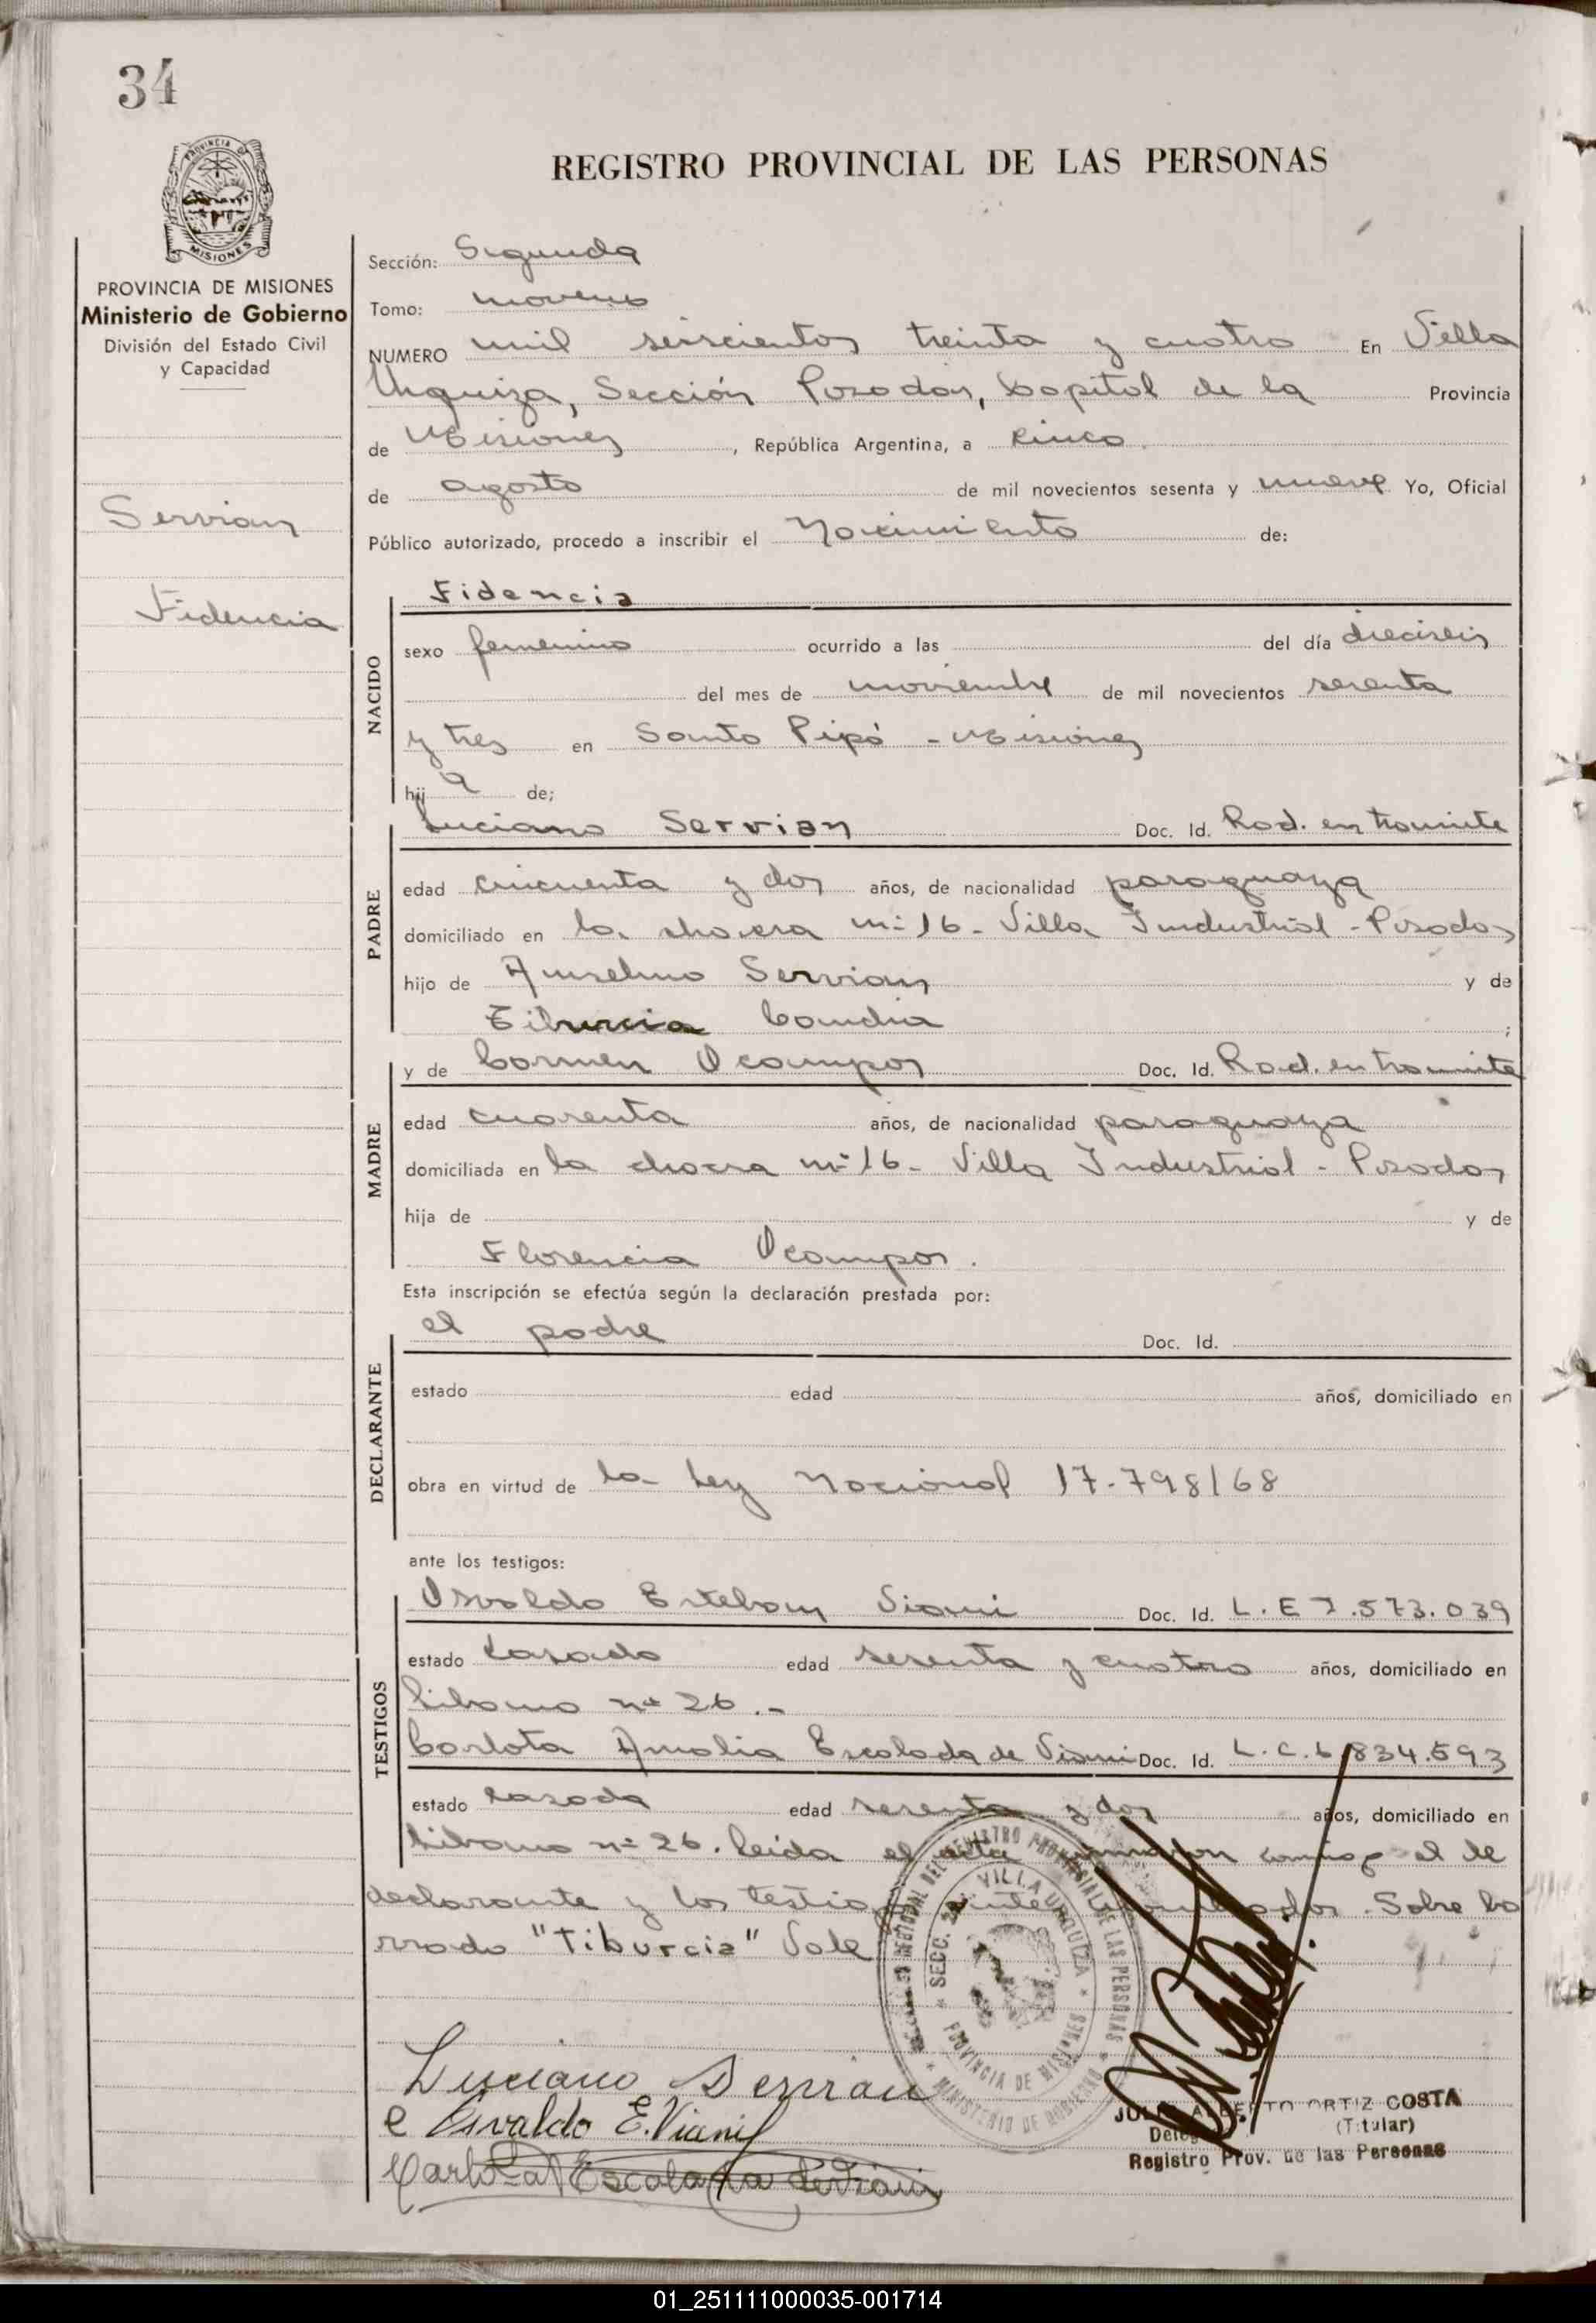 34
REGISTRO PROVINCIAL DE LAS PERSONAS
PROVINCIA DE
MISIONES
PROVINCIA DE MISIONES
Ministerio de Gobierno
División del Estado Civil
y Capacidad
Servian
Fidencia
Sección: Segunda
Tomo: noveno
NUMERO mil seiscientos treinta y cuatro En Villa
Urquiza, Sección Posadas, Capital de la Provincia
de Misiones, República Argentina, a cinco
de agosto de mil novecientos sesenta y nueve Yo, Oficial
Público autorizado, procedo a inscribir el Nacimiento de:
NACIDO
Fidencia
sexo femenino ocurrido a las del día dieciseis
del mes de noviembre de mil novecientos sesenta
y tres en Santo Pipó - Misiones
hij a de;
PADRE
Luciano Servian Doc. Id. Rad. en tramite
edad cincuenta y dos años, de nacionalidad paraguaya
domiciliado en la chacra nº 16 - Villa Industrial - Posadas
hijo de Anselmo Servian y de
Tiburcia Candia ;
MADRE
y de Carmen Ocampos Doc. Id. Rad. en tramite
edad cuarenta años, de nacionalidad paraguaya
domiciliada en la chacra nº 16 - Villa Industrial - Posadas
hija de y de
Florencia Ocampos.
Esta inscripción se efectúa según la declaración prestada por:
DECLARANTE
el padre Doc. Id.
estado edad años, domiciliado en
obra en virtud de la Ley Nacional 17.798/68
ante los testigos:
TESTIGOS
Osvaldo Esteban Viani Doc. Id. L. E 7.573.039
estado casado edad sesenta y cuatro años, domiciliado en
Libano nº 26.-
Carlota Amalia Escalada de Viani Doc. Id. L. C. 6.834.593
estado casada edad sesenta y dos años, domiciliado en
Libano nº 26. Leida el acta firmaron conmigo el de
clarante y los testigos Sobre bo
rrado "Tiburcia" Vale
REGISTRO PROVINCIAL DE LAS PERSONAS
SECC. 2a. VILLA URQUIZA
PROVINCIA DE MISIONES
MINISTERIO DE GOBIERNO
Luciano Servian
Osvaldo E. Viani
Carlota A Escalada de Viani
ORTIZ COSTA
(Titular)
Registro Prov. de las Personas
01_251111000035-001714